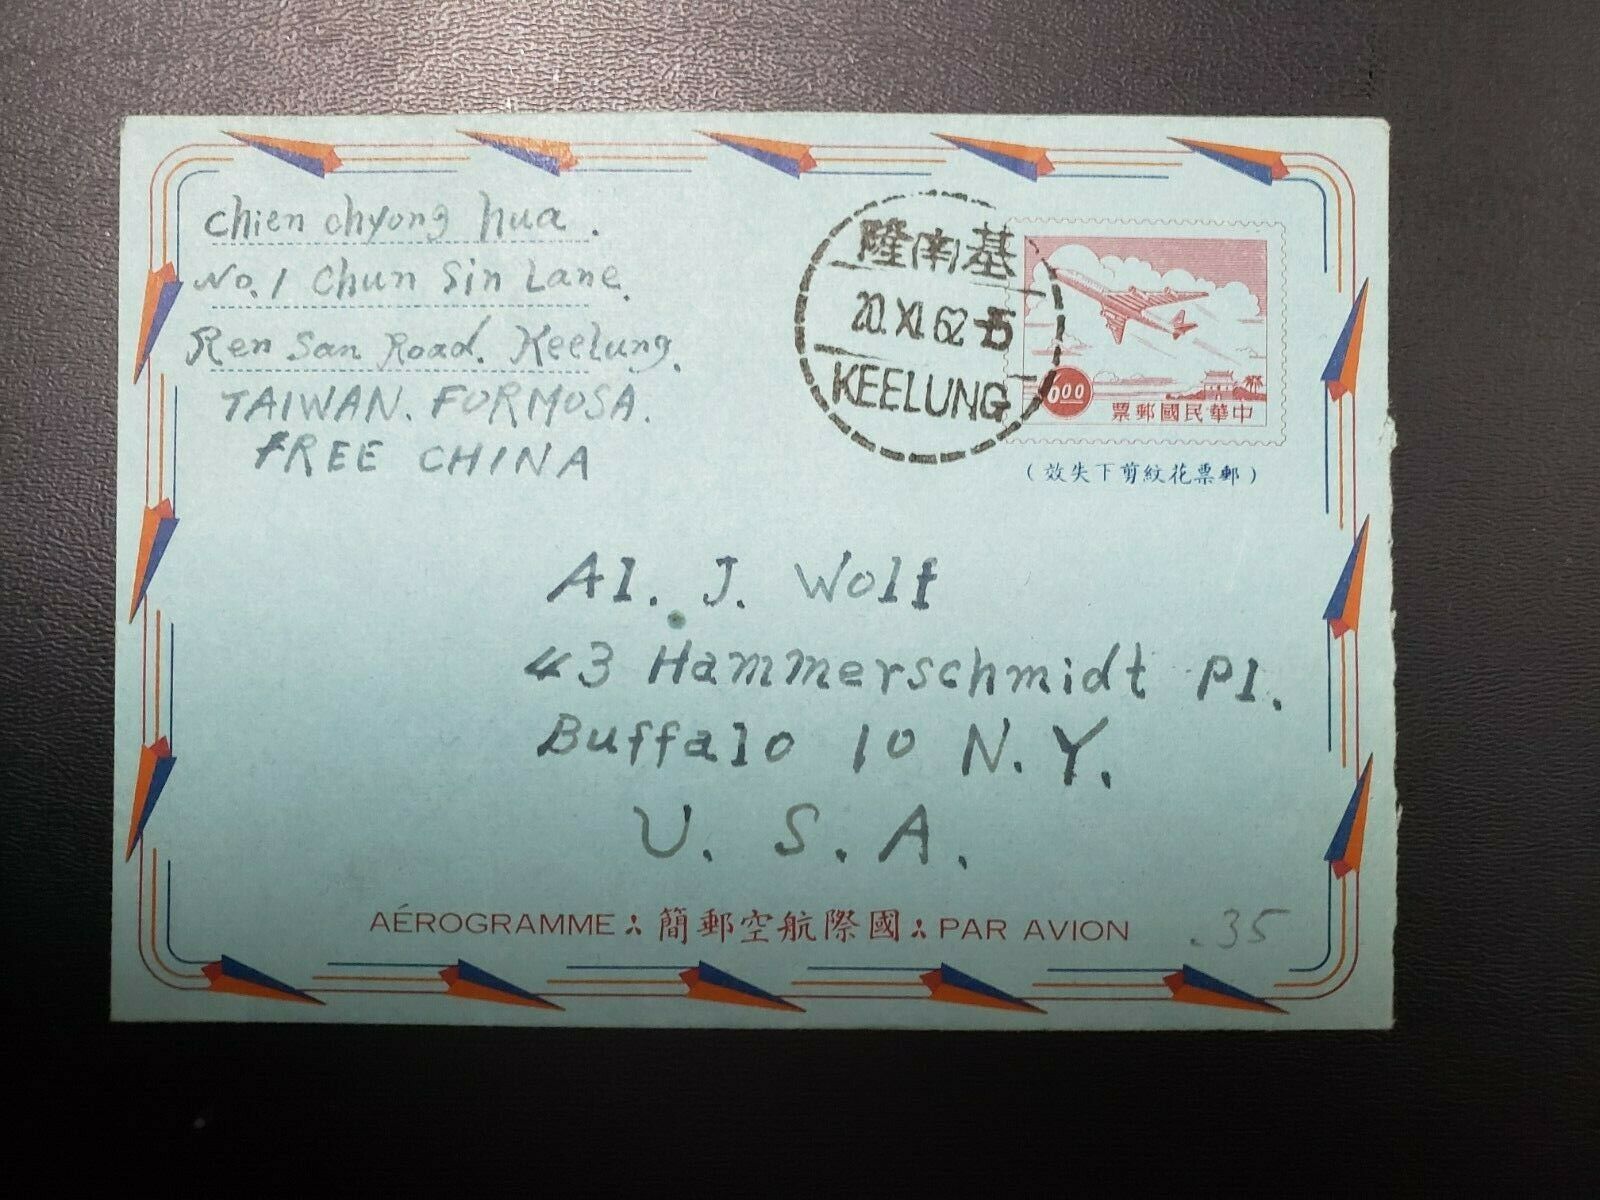 chien chyong hua.
No. 1 Chun Sin Lane.
Ren San Road. Keelung.
TAIWAN. FORMOSA.
FREE CHINA
隆南基
20.XI.62
KEELUNG
6.00
票郵國民華中
(效失下剪紋花票郵)
Al. J. Wolf
43 Hammerschmidt Pl.
Buffalo 10 N.Y.
U. S. A.
AÉROGRAMME ∴ 簡郵空航際國 ∴ PAR AVION
.35